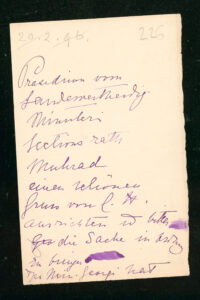 20.2.96.
226
Praesidium vom
Landesvertheidig
Minister
Sections rath
Muhrad
einen schönen
Gruss von C. H.
ausrichten u bitten
die Sache in Ordng
zu bringen
Der Min. Georgi hat